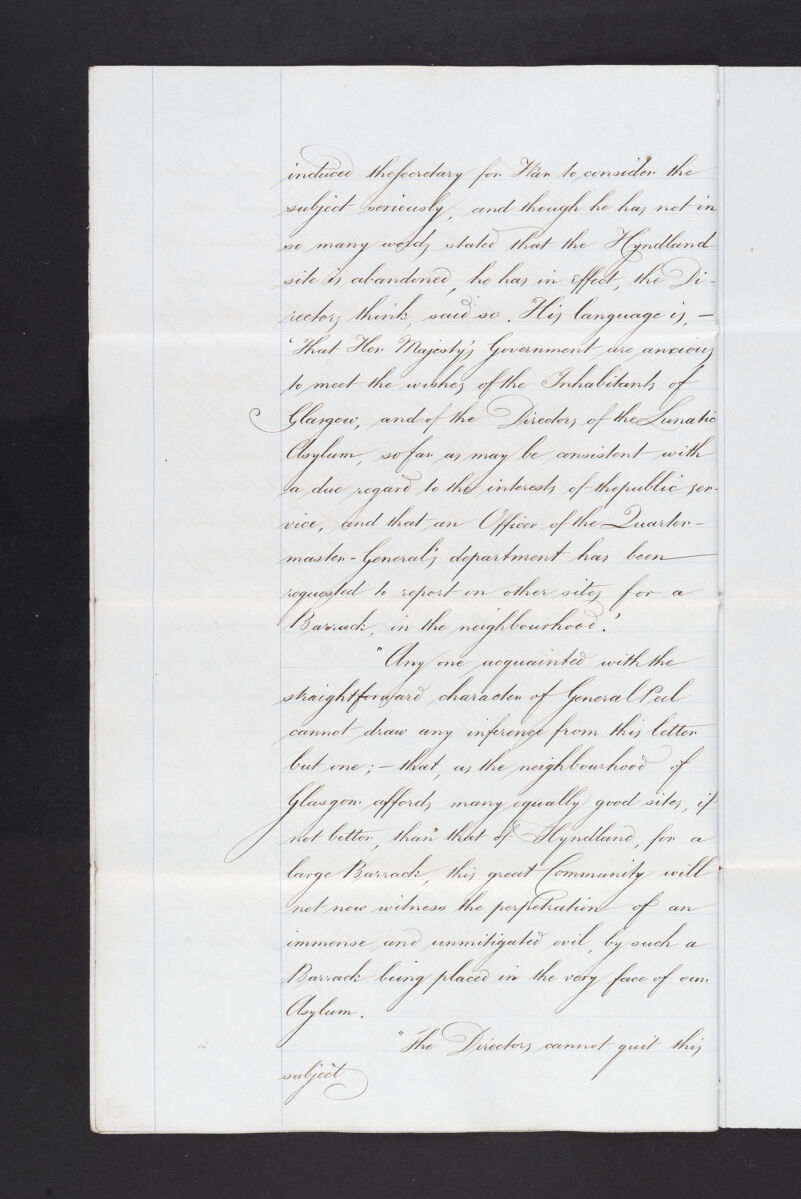 induced the Secretary for War to consider the
subject seriously, and though he has not in
so many words stated that the Hyndland
site is abandoned, he has in effect, the Di-
rectors think, said so. His language is, —
'That Her Majesty's Government are anxious
to meet the wishes of the Inhabitants of
Glasgow, and of the Directors of the Lunatic
Asylum, so far as may be consistent with
a due regard to the interests of the public ser-
vice, and that an Officer of the Quarter-
master-General's department has been
requested to report on other sites for a
Barrack, in the neighbourhood.'
"Any one acquainted with the
straightforward character of General Peel
cannot draw any inference from this letter
but one; — that, as the neighbourhood of
Glasgow affords many equally good sites, if
not better, than that of Hyndland, for a
large Barrack, this great Community will
not now witness the perpetration of an
immense and unmitigated evil, by such a
Barrack being placed in the very face of our
Asylum.
"The Directors cannot quit this
subject